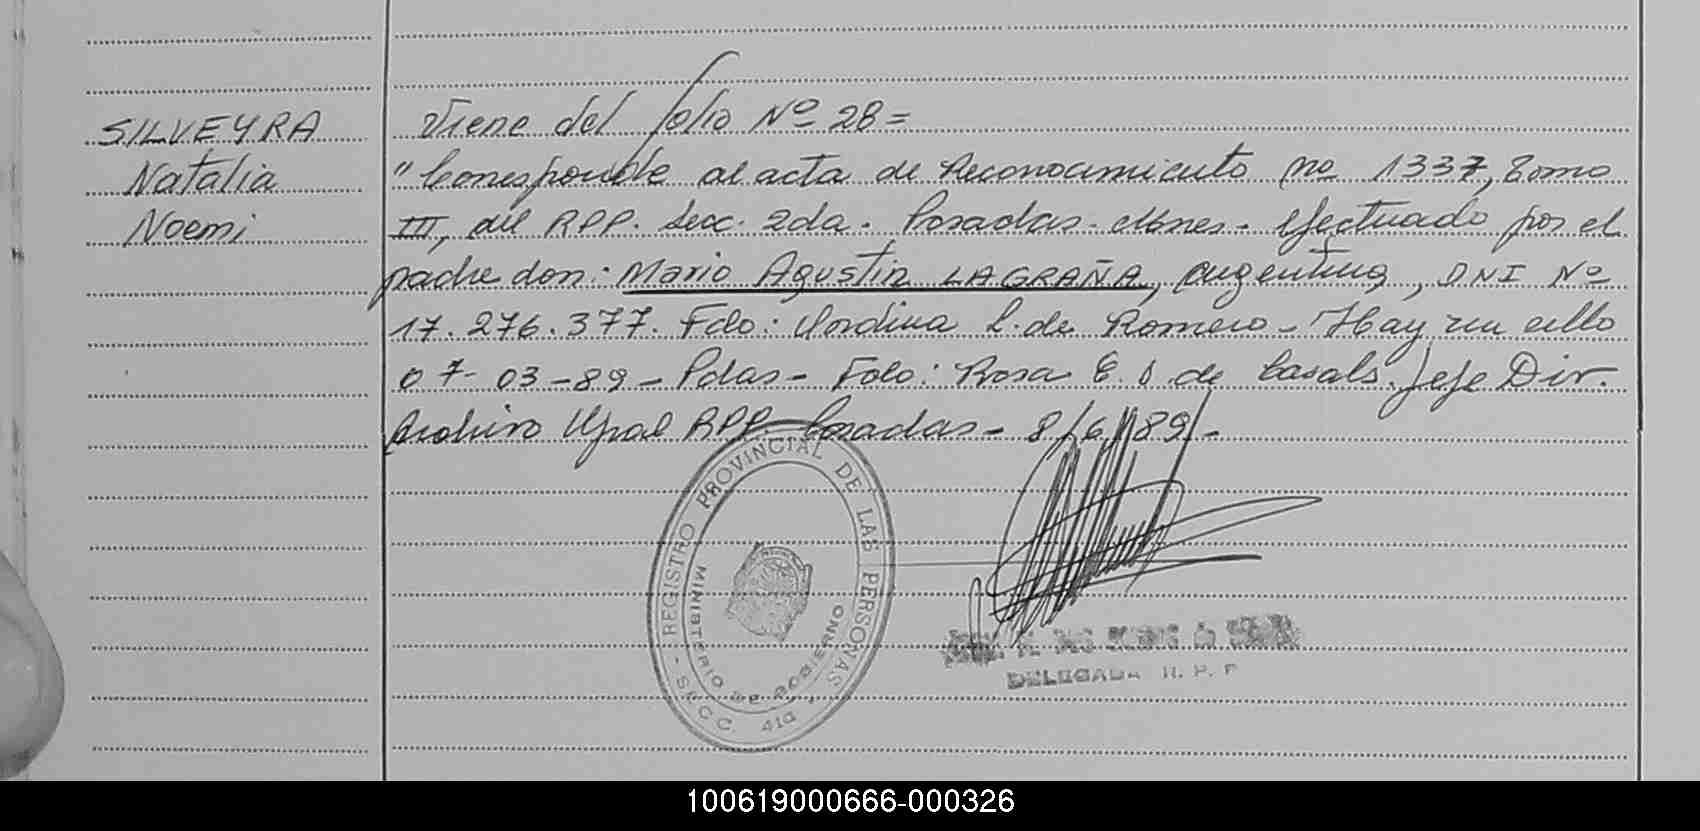 SILVEYRA
Natalia
Noemi
Viene del folio Nº 28=
"Corresponde al acta de Reconocimiento nº 1337, Tomo
III, del RPP. Secc. 2da. Posadas - Mnes - efectuado por el
padre don: Mario Agustin LAGRAÑA, argentino, DNI Nº
17.276.377. Fdo: L. de Romero - Hay un sello
07-03-89 - Pdas - Fdo: Rosa E. de Casals. Jefe Div.
Archivo Gral RPP. Posadas - 8/6/89 -
REGISTRO PROVINCIAL DE LAS PERSONAS
MINISTERIO DE GOBIERNO
SECC. 4ta
DELEGADA R. P. P
100619000666-000326